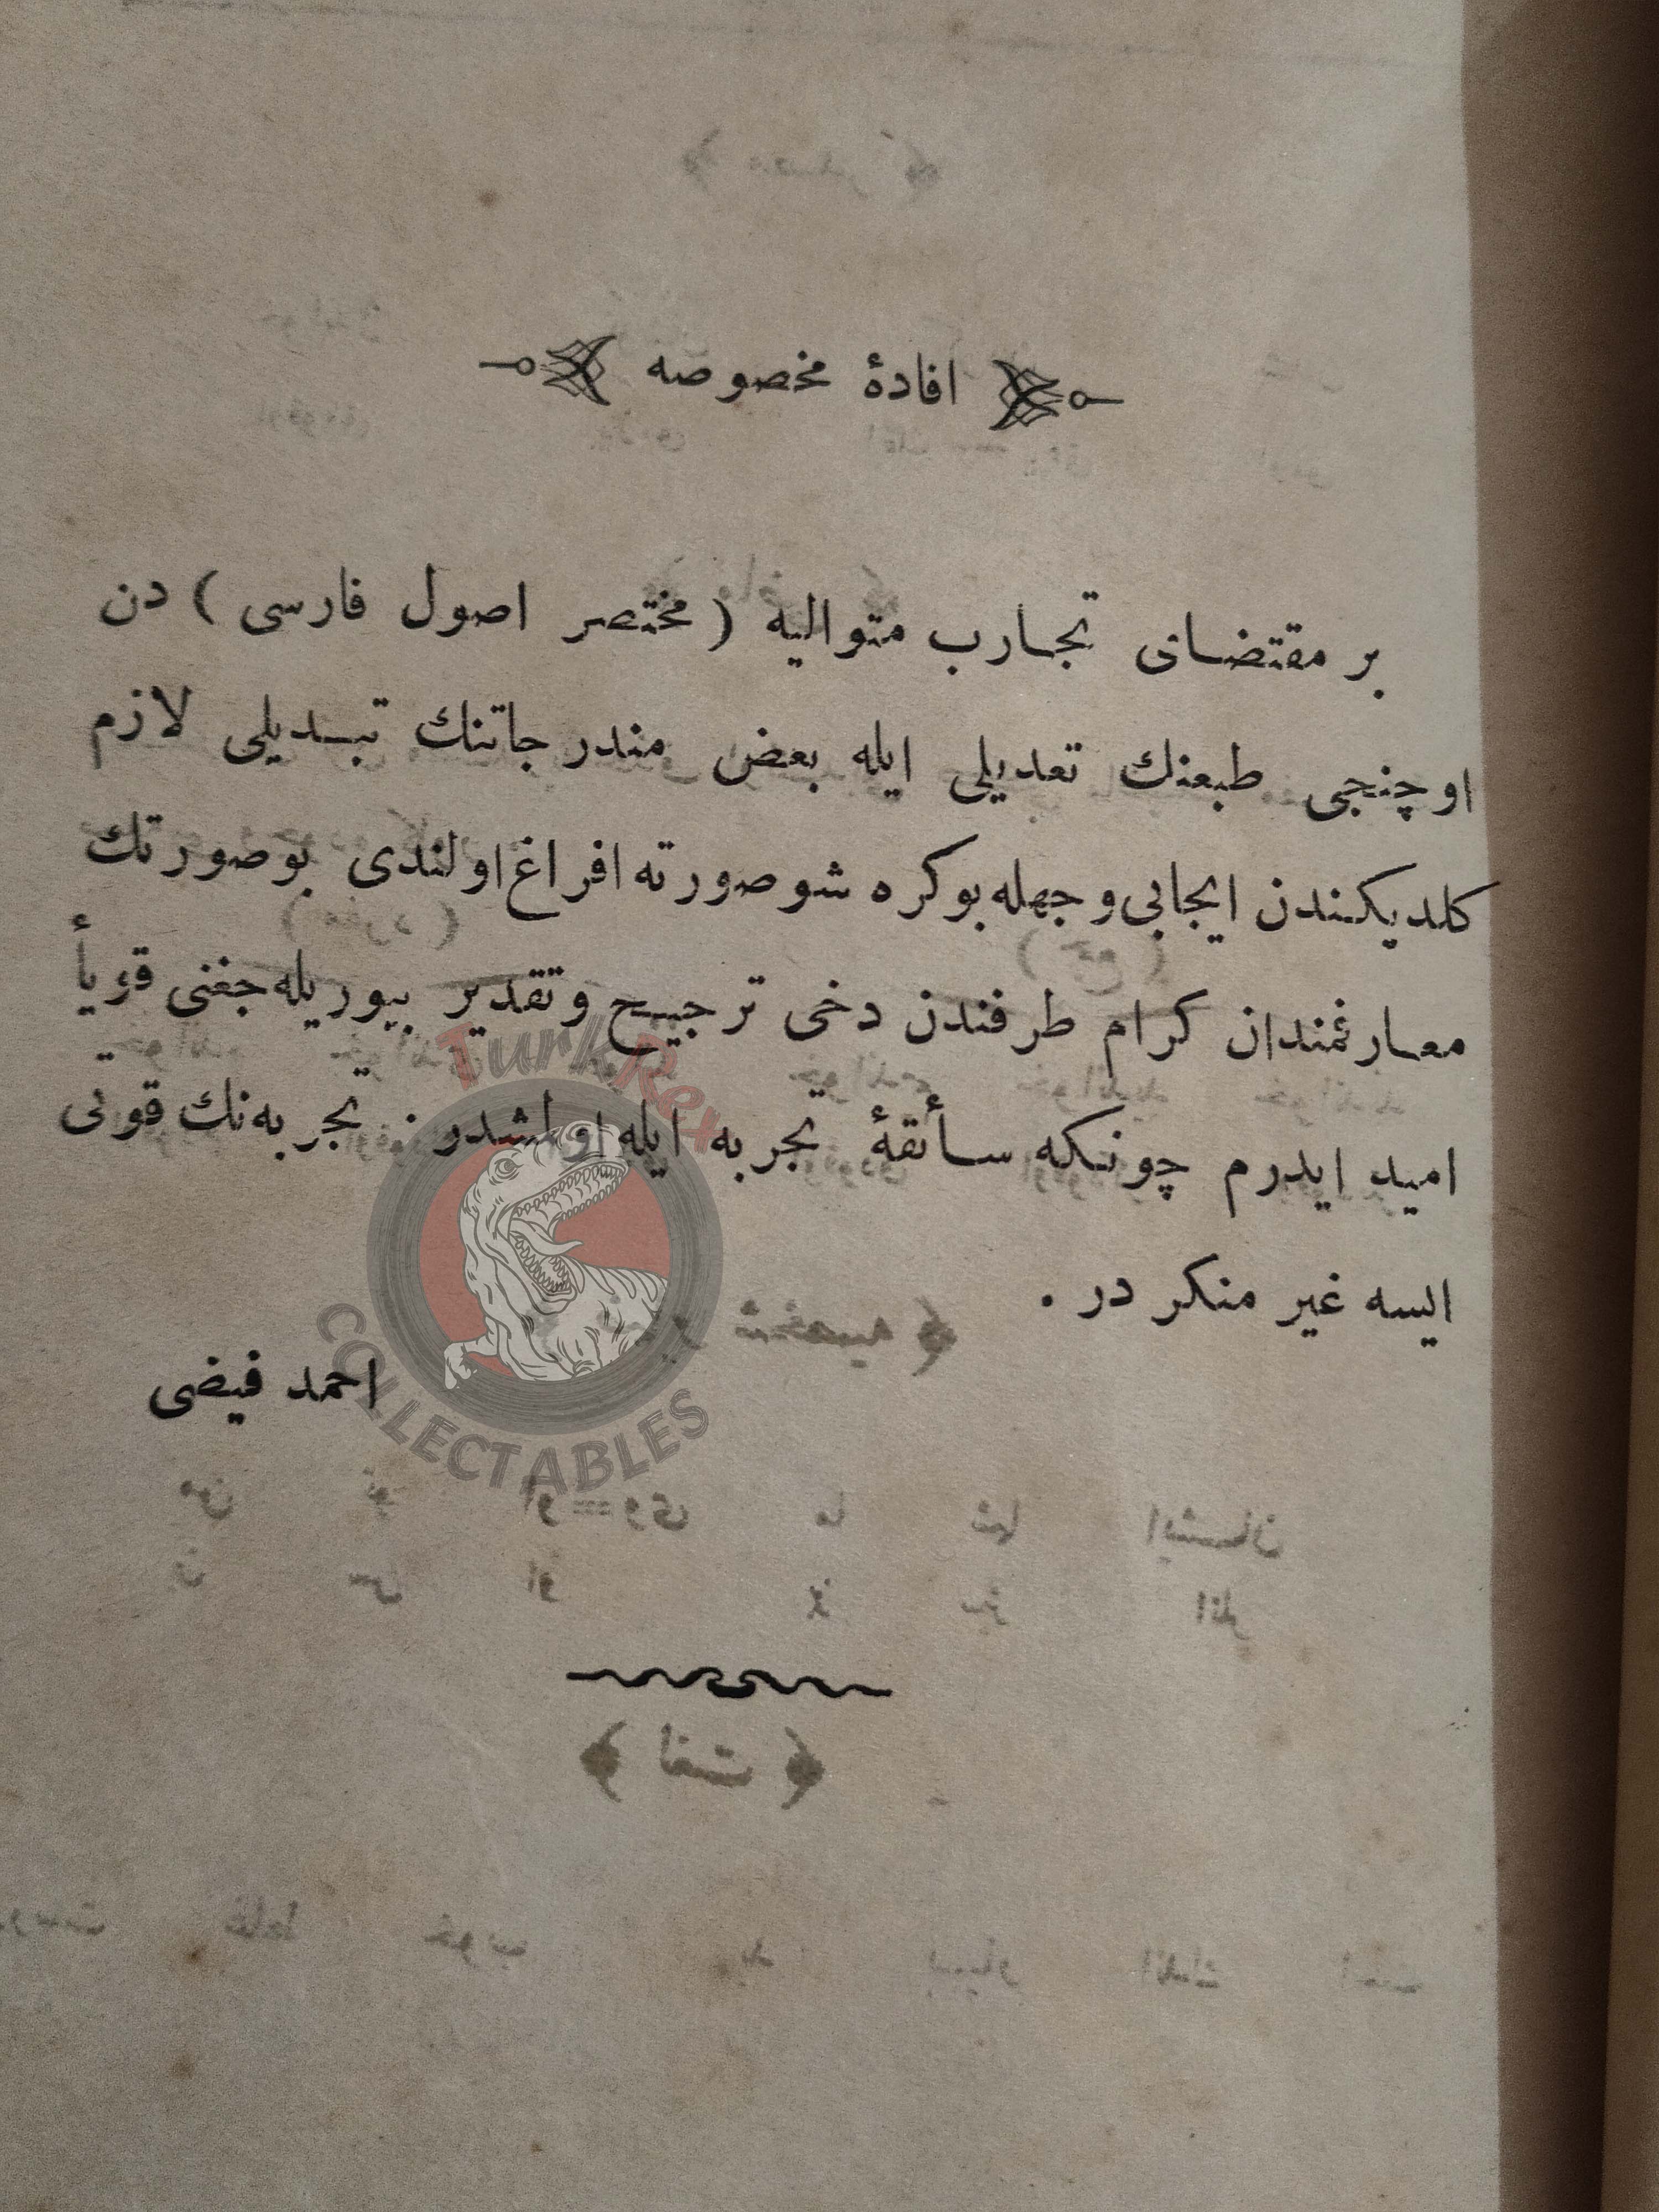 افادۀ مخصوصه
بر مقتضای تجارب متوالیه ( مختصر اصول فارسی ) دن
اوچنجی طبعنك تعدیلی ایله بعض مندرجاتنك تبدیلی لازم
كلدیكندن ایجابی وجهله بوكره شو صورته افراغ اولندی بوصورتك
معارفمندان كرام طرفندن دخی ترجیح وتقدیر بیوریله جغنی قویأ
امید ایدرم چونكه سأئقۀ تجربه ایله اولشدر . تجربه نك قوتی
ایسه غیر منكر در .
احمد فیضی
TurkRex
COLLECTABLES